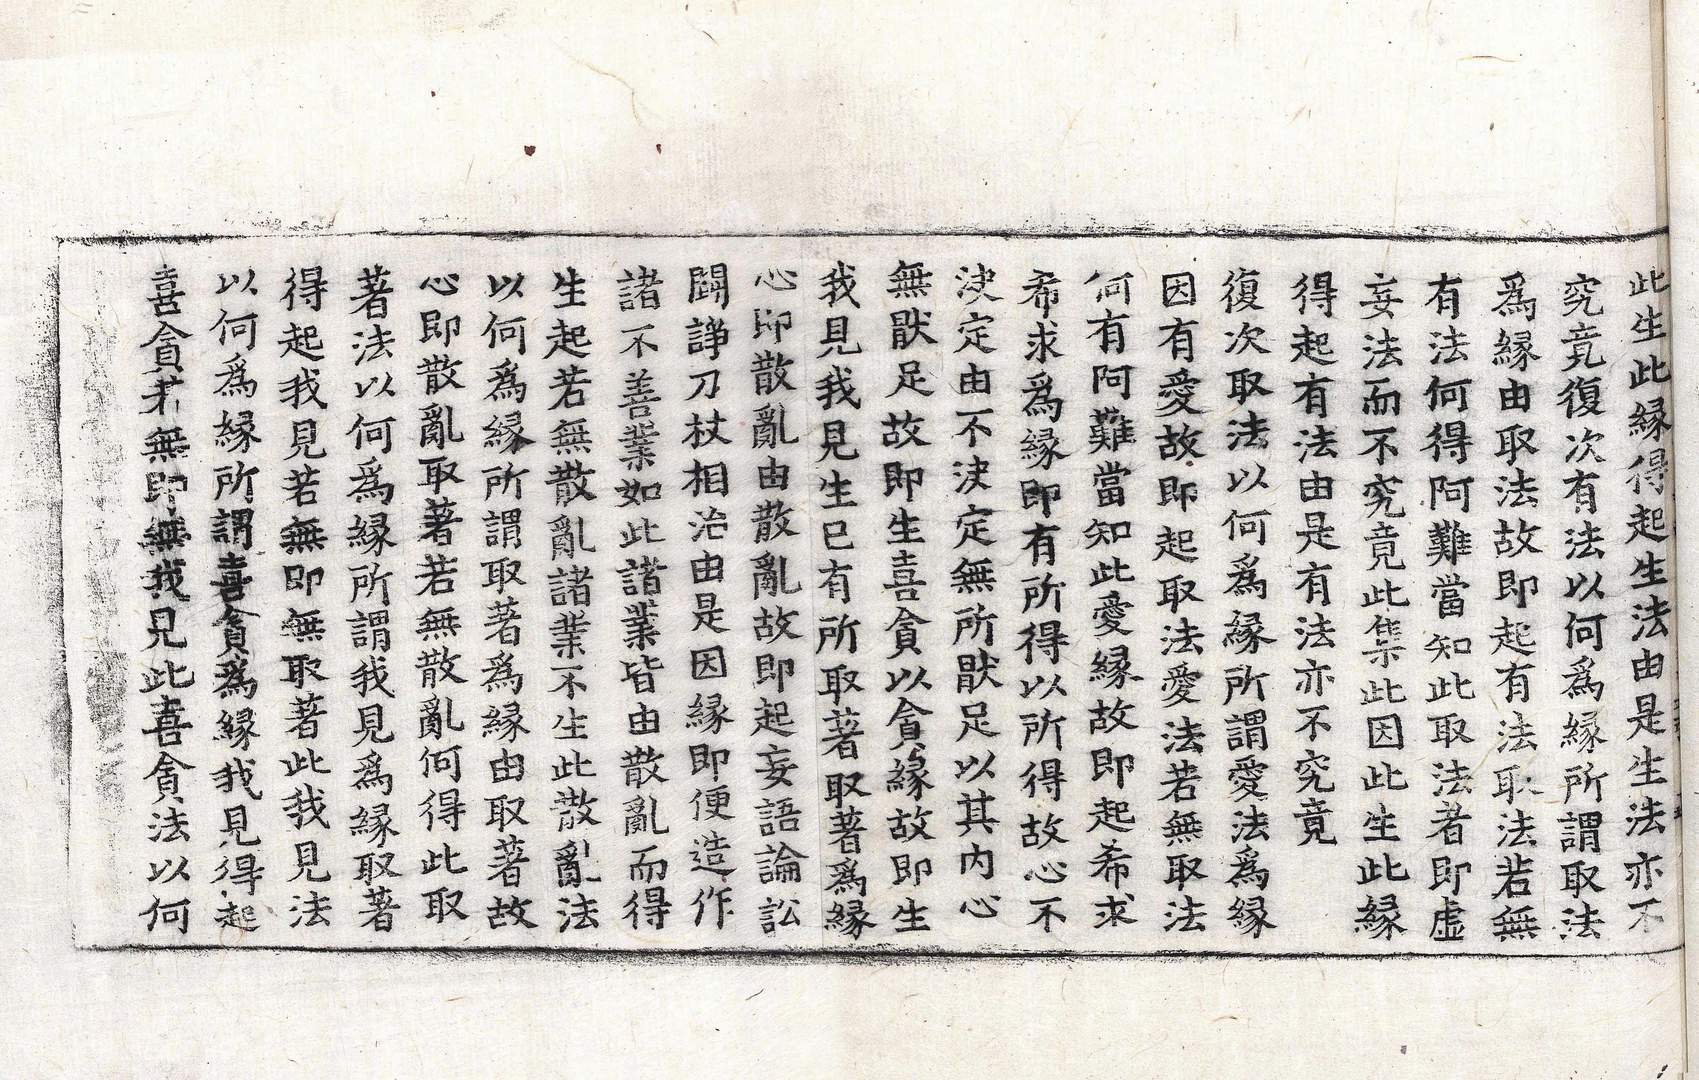 此生此縁得起生法由是生法亦不
究竟復次有法以何爲縁所謂取法
爲縁由取法故即起有法取法若無
有法何得阿難當知此取法者即虛
妄法而不究竟此集此因此生此縁
得起有法由是有法亦不究竟
復次取法以何爲縁所謂愛法爲縁
因有愛故即起取法愛法若無取法
何有阿難當知此愛縁故即起希求
希求爲縁即有所得以所得故心不
決定由不決定無所猒足以其内心
無猒足故即生喜貪以貪縁故即生
我見我見生已有所取著取著爲縁
心即散亂由散亂故即起妄語論訟
鬪諍刀杖相治由是因縁即便造作
諸不善業如此諸業皆由散亂而得
生起若無散亂諸業不生此散亂法
以何爲縁所謂取著爲縁由取著故
心即散亂取著若無散亂何得此取
著法以何爲縁所謂我見爲縁取著
得起我見若無即無取著此我見法
以何爲縁所謂喜貪爲縁我見得起
喜貪若無即無我見此喜貪法以何